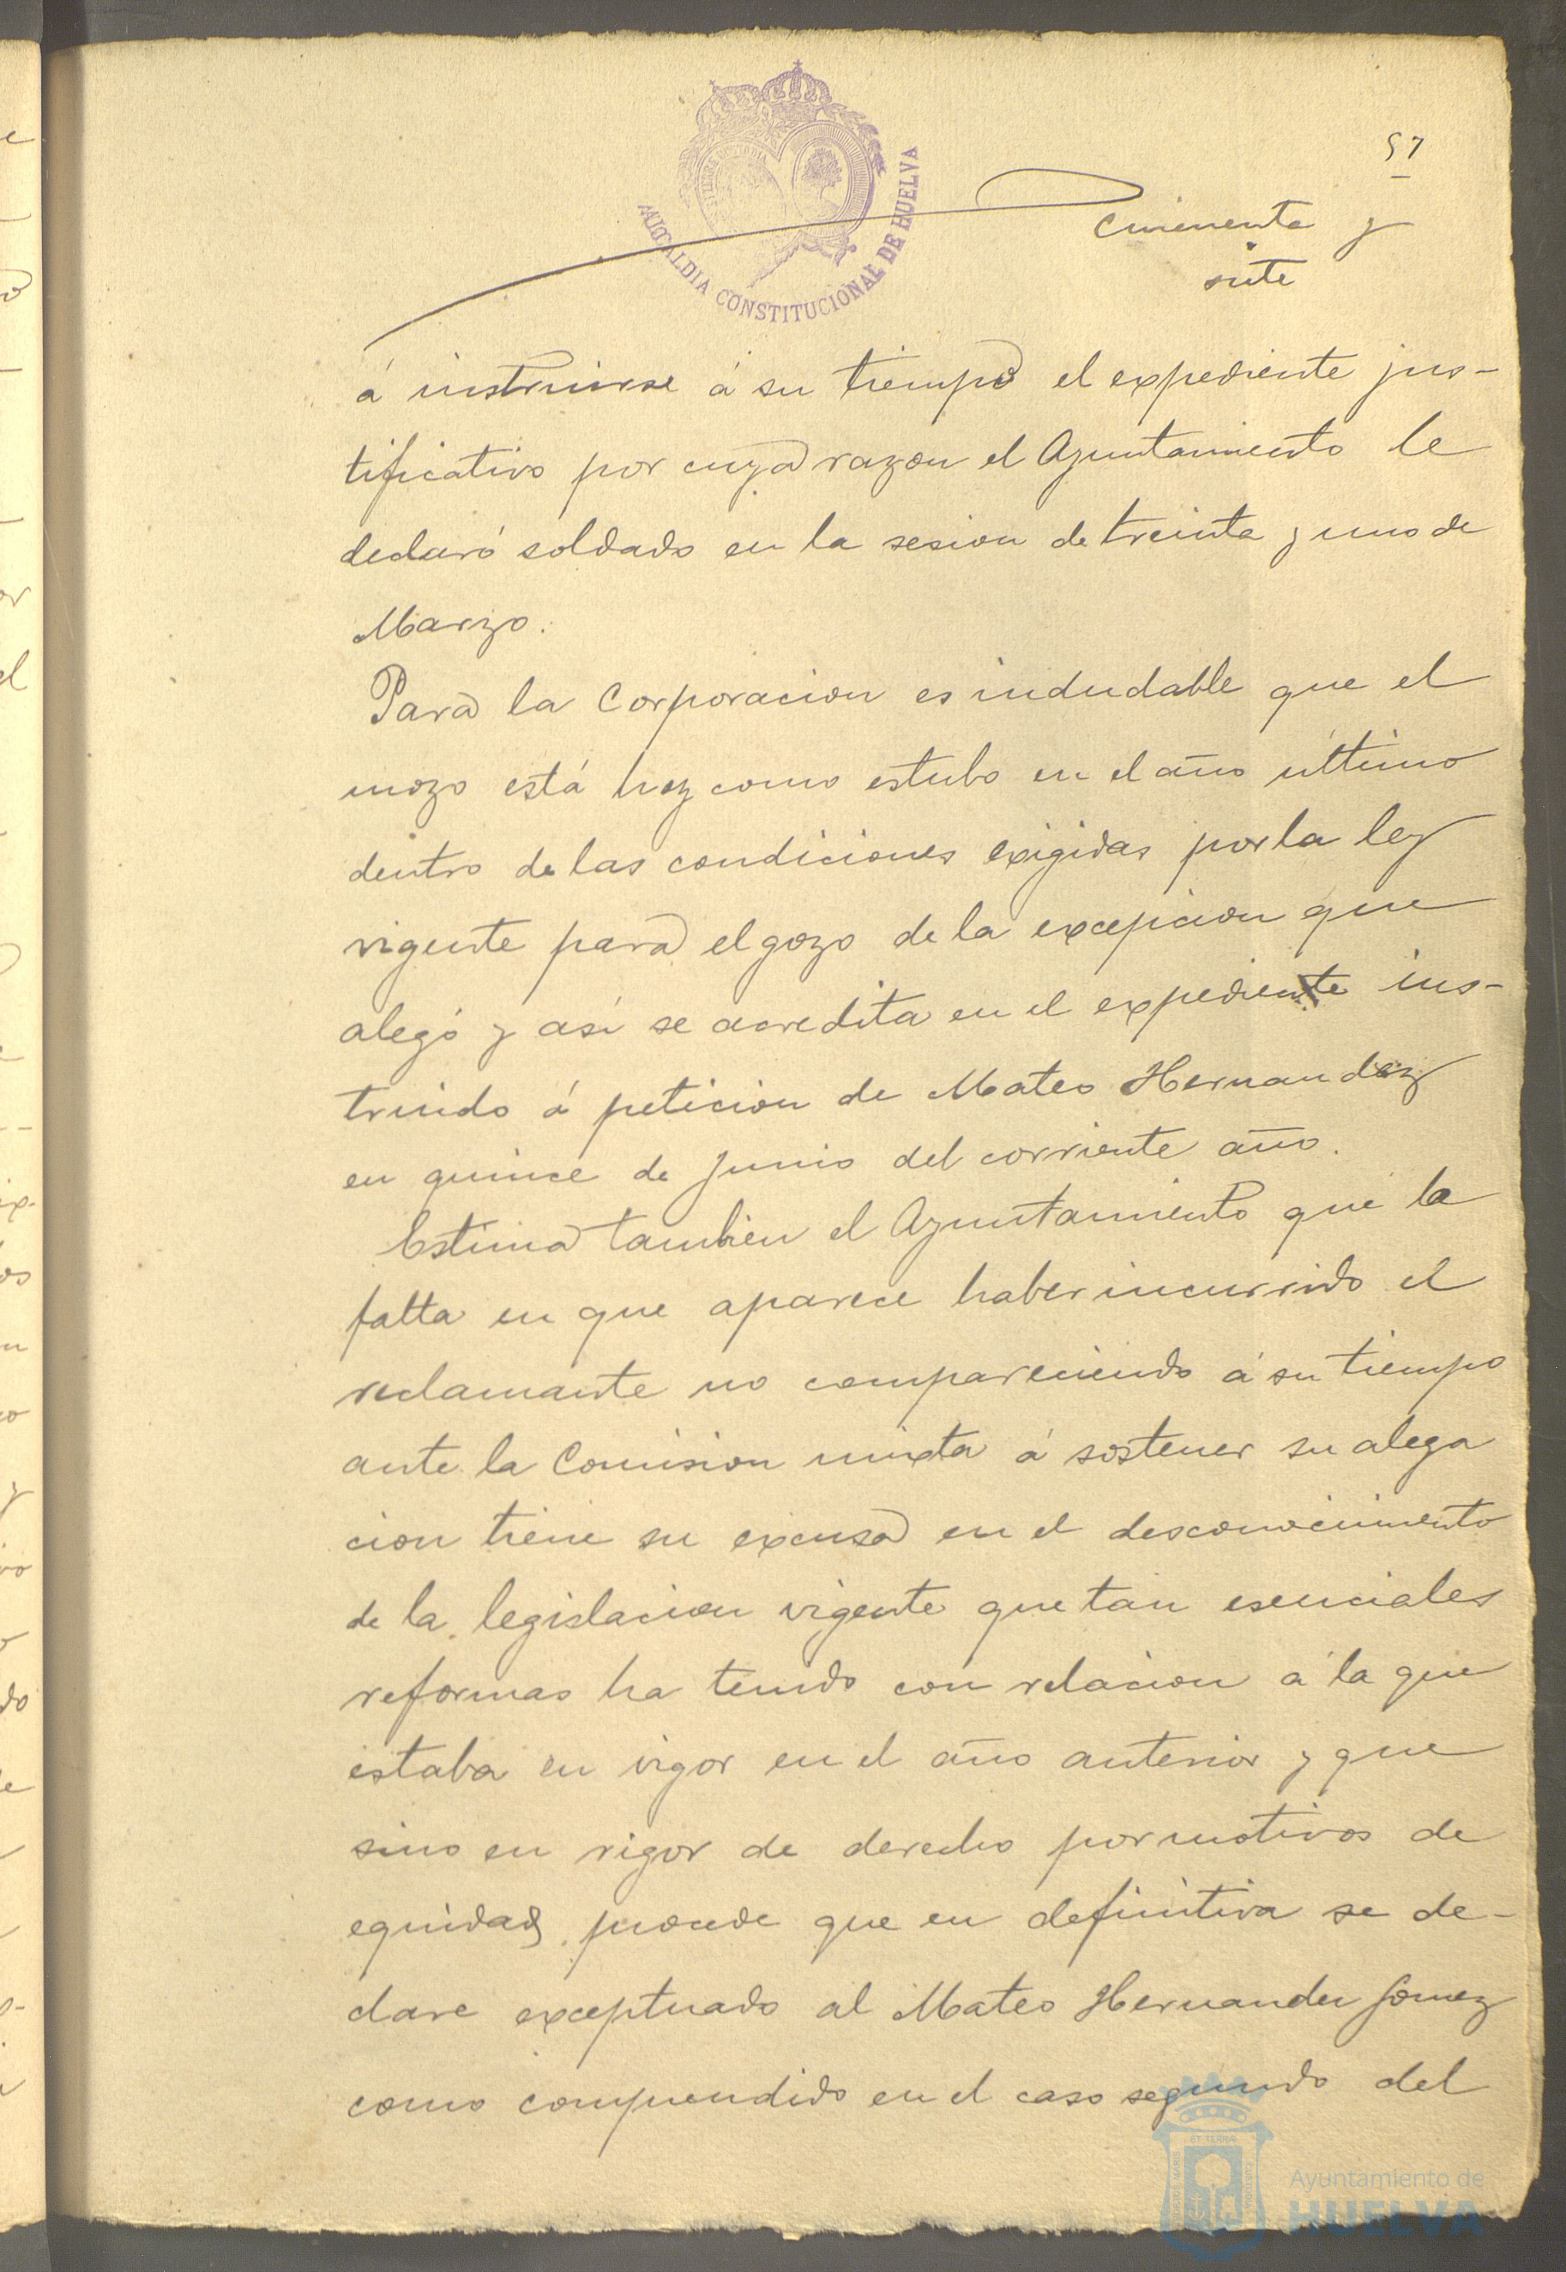 57
cincuenta y
siete
ALCALDIA CONSTITUCIONAL DE HUELVA
á instruirse á su tiempo el expediente jus-
tificativo por cuya razon el Ayuntamiento le
declaró soldado en la sesion de treinta y uno de
Marzo.
Para la Corporacion es indudable que el
mozo está hoy como estubo en el año último
dentro de las condiciones exigidas por la ley
vigente para el gozo de la excepcion que
alegó y así se acredita en el expediente ins-
truido á peticion de Mateo Hernandez
en quince de Junio del corriente año.
Estima tambien el Ayuntamiento que la
falta en que aparece haber incurrido el
reclamante no compareciendo á su tiempo
ante la Comision mixta á sostener su alega
cion tiene su excusa en el desconocimiento
de la legislacion vigente que tan esenciales
reformas ha tenido con relacion á la que
estaba en vigor en el año anterior y que
sino en rigor de derecho por motivos de
equidad procede que en definitiva se de-
clare exceptuado al Mateo Hernandez Gomez
como comprendido en el caso segundo del
Ayuntamiento de
HUELVA